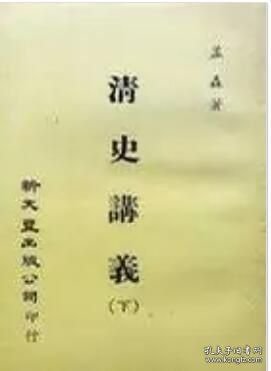 孟森著
清史講義
（下）
新文豐出版公司印行
孔夫子旧书网